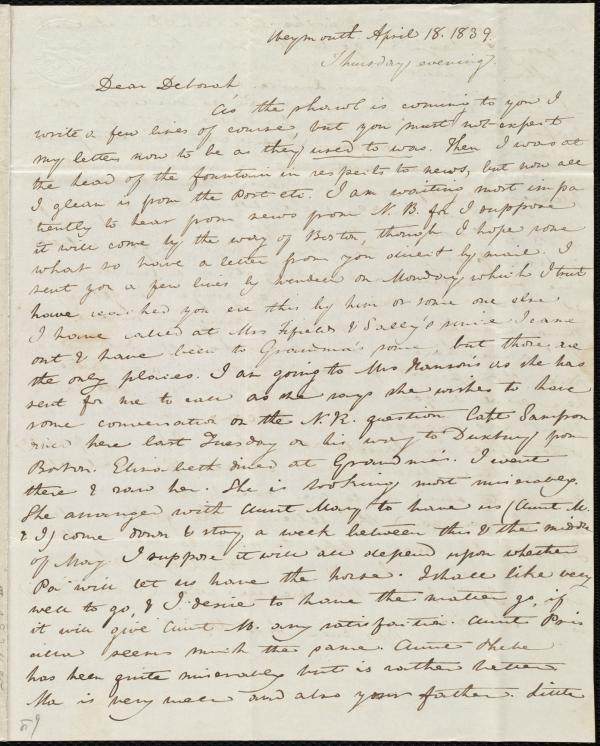 Weymouth April 18. 1839.
Thursday evening.
Dear Deborah
As the shawl is coming to you I
write a few lines of course, but you must not expect
my letters now to be as they used to was. Then I was at
the head of the fountain in respects to news, but now all
I glean is from the Post etc. I am waiting most impa
tiently to hear from news from N. B. for I suppose
it will come by the way of Boston, though I hope some
what to have a letter from you direct by mail. I
sent you a few lines by on Monday which I trust
have reached you ere this by him or some one else
I have called at Mrs Fifield's & Sally's since I came
out & have been to Grandma's some, but those are
the only places. I am going to Mrs as she has
sent for me to call as she says she wishes to have
some conversation on the N.R. question Capt Sampson
here last Tuesday on his way to Duxbury from
Boston. Elizabeth dined at Grandma's. I went
there & saw her. She is looking most miserably.
She arranged with Aunt Mary to have us (Aunt M.
& I) come down & stay a week between this & the middle
of May. I suppose it will all depend upon whether
Pa will let us have the horse. I shall like very
well to go, & I desire to have the matter go, if
it will give Aunt M. any satisfaction. Aunt Pris
cilla seems much the same. Aunt Phebe
has been quite miserable but is rather better
Ma is very well and also your father. Little